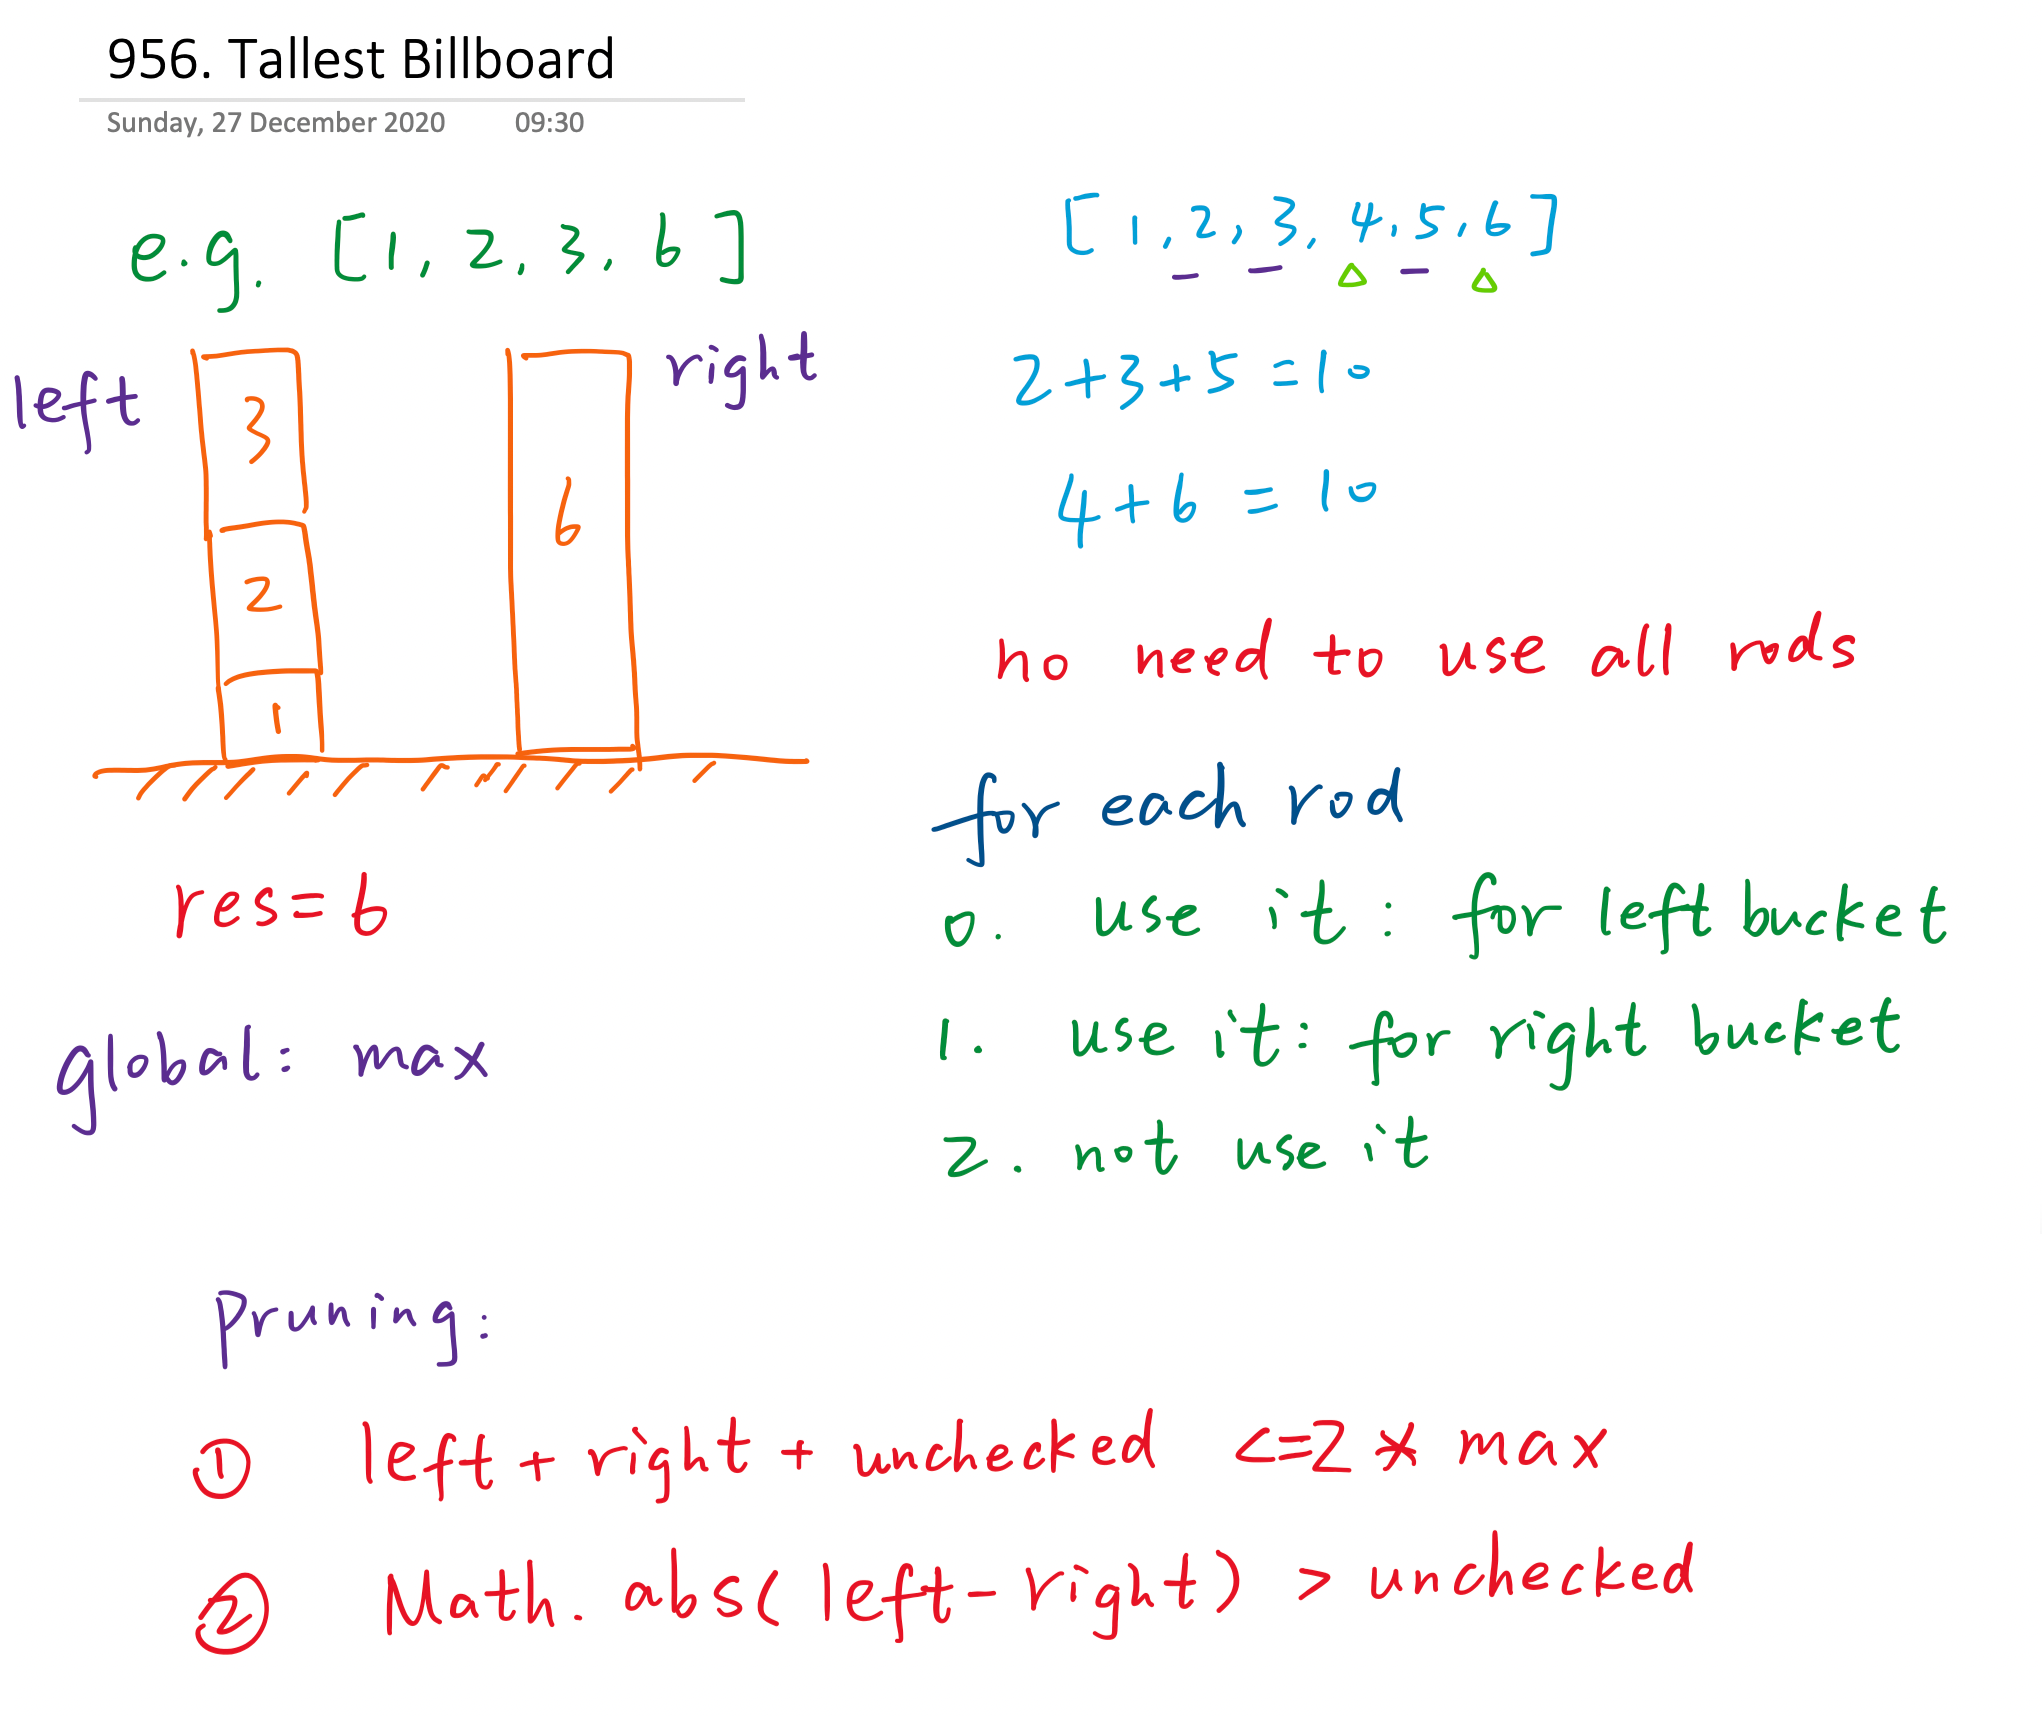 956. Tallest Billboard
Sunday, 27 December 2020 09:30
e.g. [1, 2, 3, 6]
left
right
3
2
1
6
res=6
global: max
[1, 2, 3, 4, 5, 6]
2+3+5=10
4+6=10
no need to use all rods
for each rod
0. use it: for left bucket
1. use it: for right bucket
2. not use it
Pruning:
① left + right + unchecked <=2 * max
② Math.abs(left-right) > unchecked